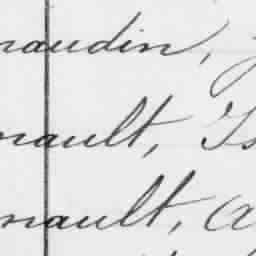 naudin,
nault, Is
nault, A